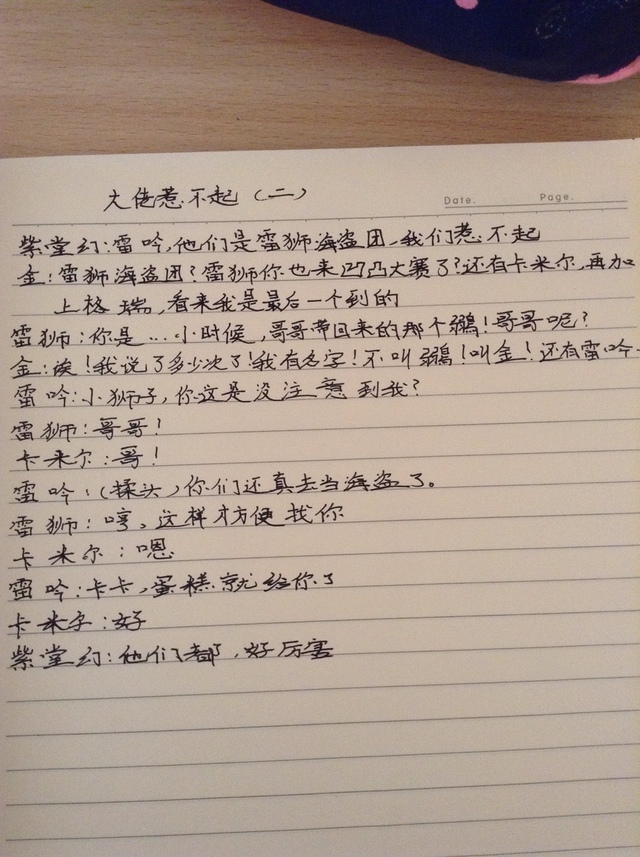 大佬惹不起（二）
Date. Page.
紫堂幻：雷吟，他们是雷狮海盗团，我们惹不起
金：雷狮海盗团？雷狮你也来凹凸大赛了？还有卡米尔，再加
上格瑞，看来我是最后一个到的
雷狮：你是…小时候，哥哥带回来的那个弱鶸！哥哥呢？
金：诶！我说了多少次了！我有名字！不叫弱鶸！叫金！还有雷吟.
雷吟：小狮子，你这是没注意到我？
雷狮：哥哥！
卡米尔：哥！
雷吟：（揉头）你们还真去当海盗了。
雷狮：哼，这样才方便找你
卡米尔：嗯
雷吟：卡卡，蛋糕就给你了
卡米尔：好
紫堂幻：他们都，好厉害